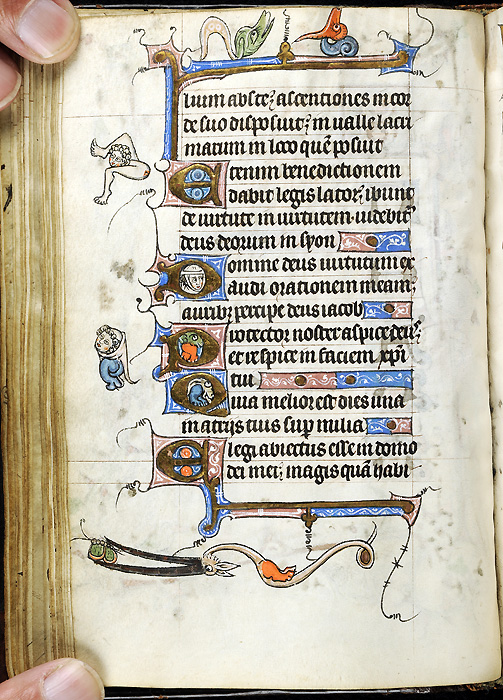 luum abs te; ascentiones in cor
de suo disposuit; in ualle lacri
marum in loco quē posuit
Etenim benedictionem
dabit legis lator; ibunt
de uirtute in uirtutem uidebit᷑
deus deorum in syon
Domine deus uirtutum ex
audi orationem meam;
aurib; percipe deus iacob
Protector noster aspice deus;
et respice in faciem xp̄i
tui
Quia melior est dies una
in atrijs tuis sup̄ milia
Elegi abiectus esse in domo
dei mei; magis quā habi